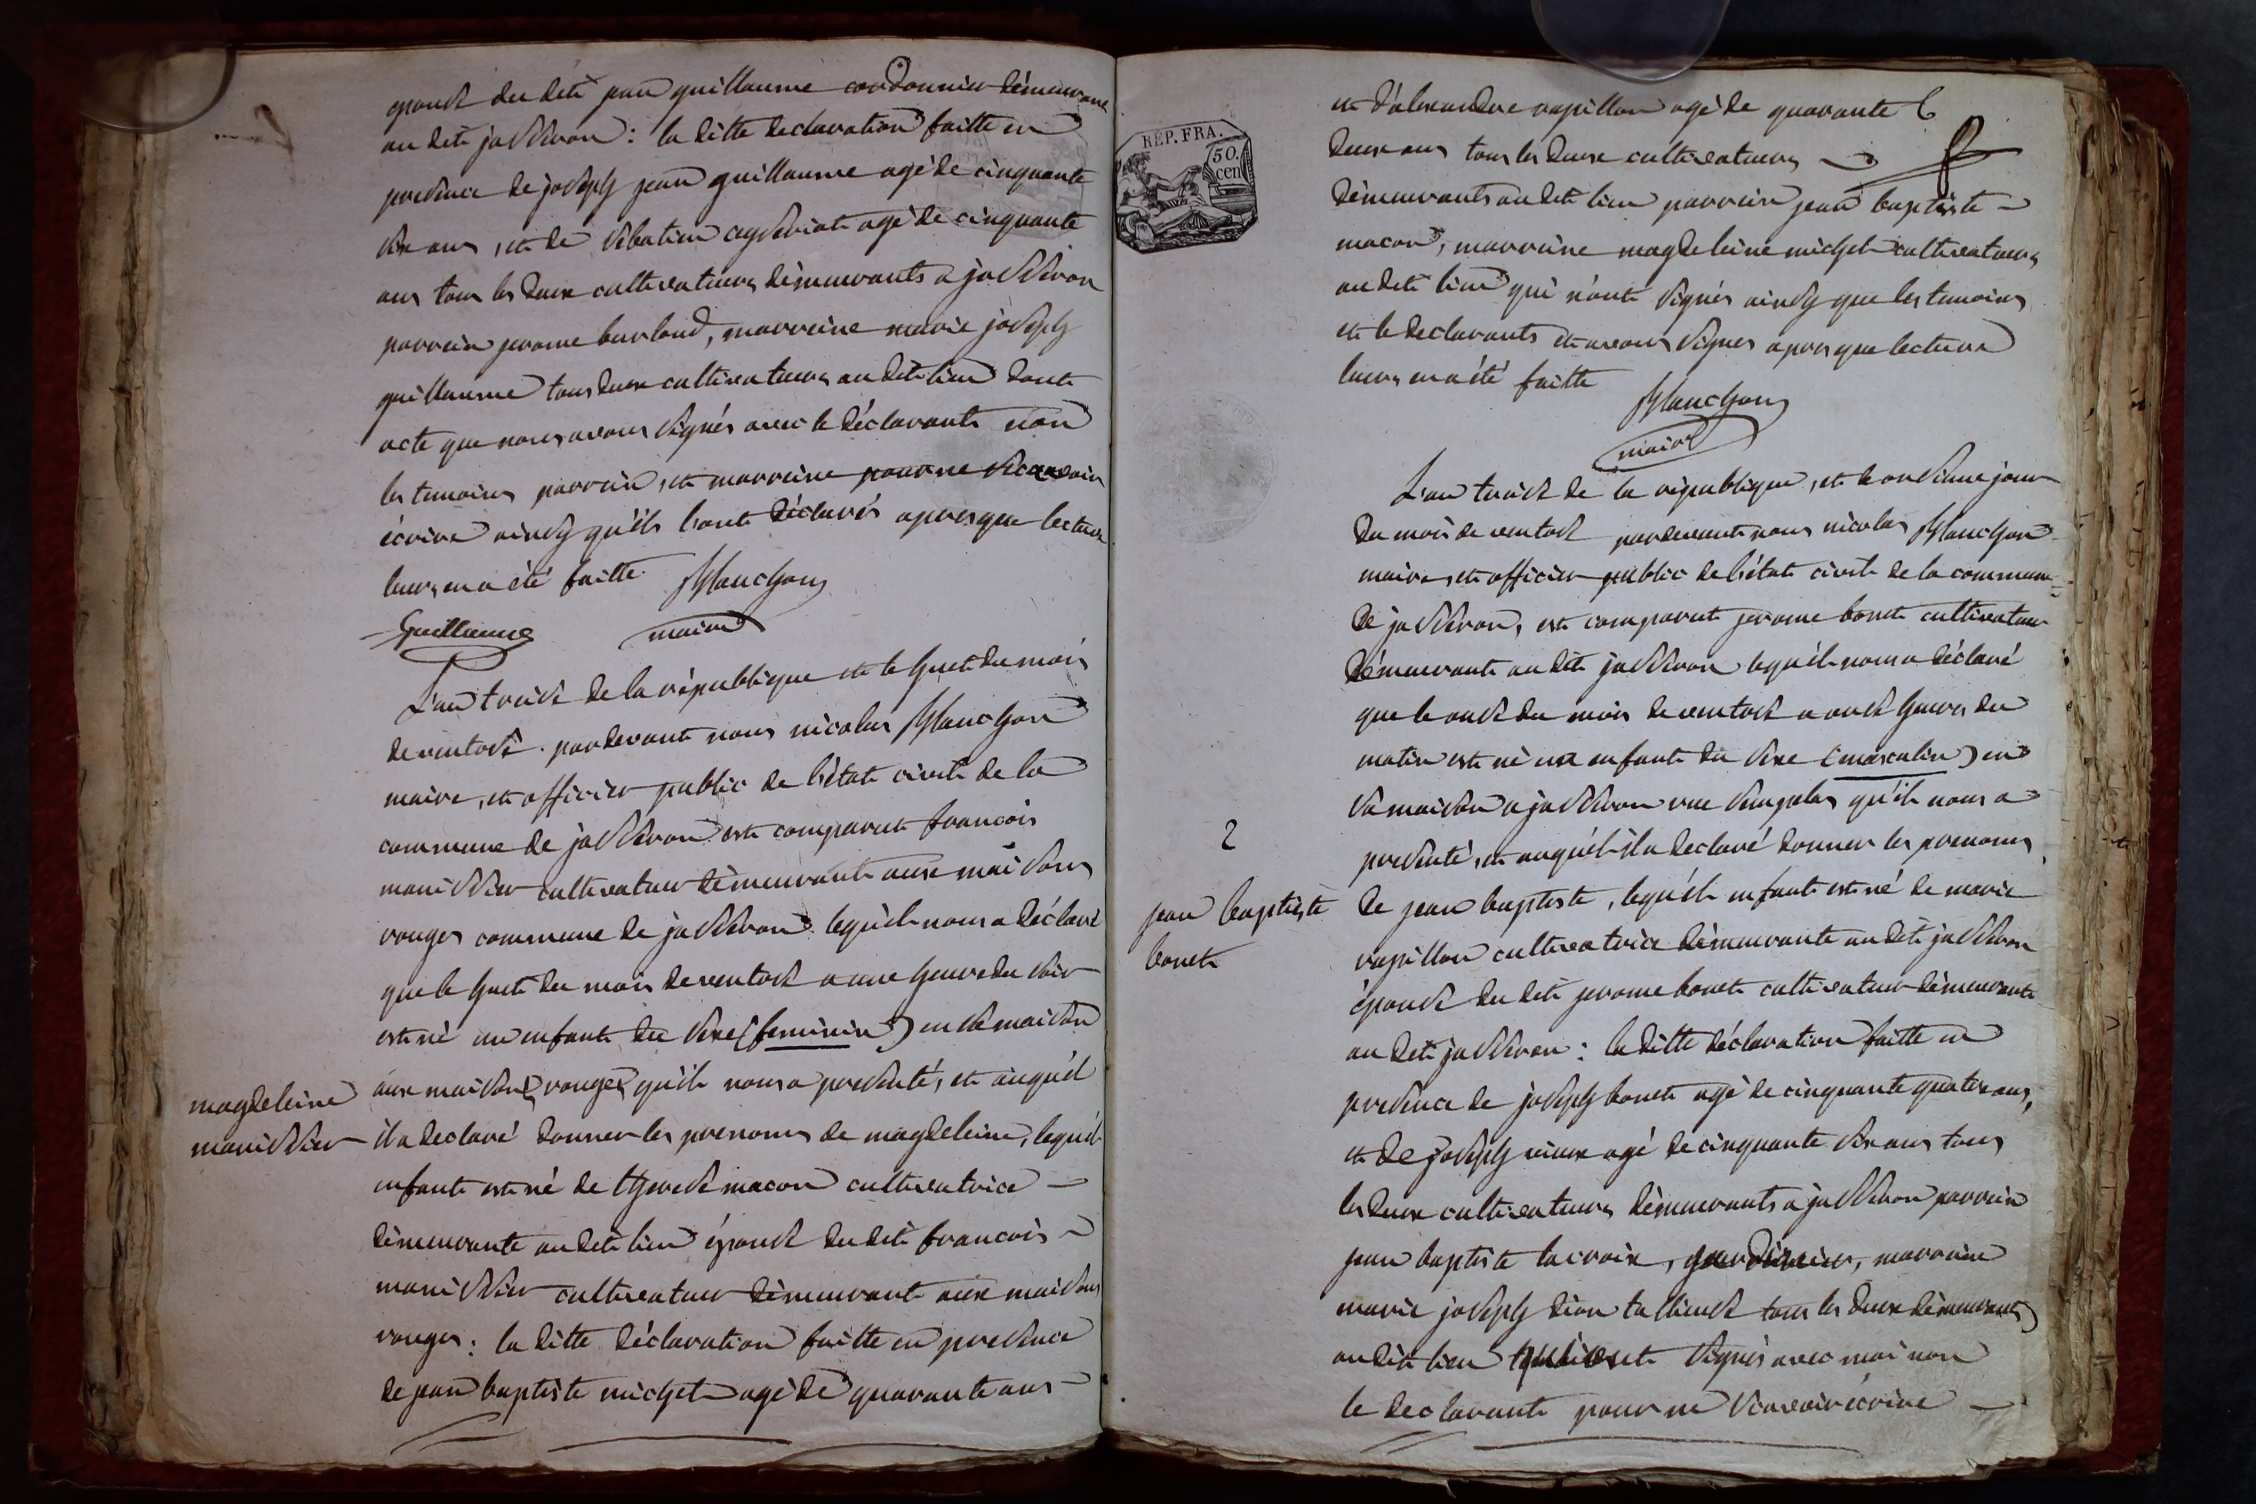 epouse du dit jean guillaume cordonnier démeurant
au dit jasseron : la ditte declaration faitte en
presence de joseph jean guillaume agé de cinquante
six ans, et de sebatien agé de cinquante
ans tous les deux cultivateurs démeurants a jasseron
parrein jerome burloud, marreine marie joseph
guillaume tous deux cultivateurs au dit lieu dont
acte que nous avons signés avec le déclarant non
les temoins parrein, et marreine pour ne scavoir
écrire ainsy qu'ils l'ont déclarés apres que lecture
leurs en a été faitte Planchon
Guillieme maire
L'an treise de la république et le huit du mois
de ventose pardevant nous nicolas Planchon
maire, et officier public de l'état civil de la
commune de jasseron est comparut francois
manissier cultivateur démeurant aux maisons
rouges commune de jasseron lequ'el nous a déclaré
que le huit du mois de ventose a une heure du soir
est né un enfant du sexe (feminin) en sa maison
magdeleine
manissier
aux maisons rouges qu'il nous a presenté, et auqu'el
il a declaré donner les prenoms de magdeleine, lequ'el
enfant est né de therese macon cultivatrice
démeurante au dit lieu épouse du dit francois
manissier cultivateur démeurant aux maisons
rouges : la ditte déclaration faitte en presence
de jean baptiste michel agé de quarante ans
REP. FRA.
50.
cen
et d'alexandre rapillon agé de quarante
deux ans tous les deux cultivateurs
démeurants au dit lieu parrein jean baptiste
macon, marreine magdeleine michel cultivateurs
au dit lieu qui n'ont signés ainsy que les temoins
et le declarants et avons signes apres que lecture
leurs en a été faitte
Planchon
maire
L'an treise de la république, et le onsieme jour
du mois de ventose pardevant nous nicolas Planchon
maire, et officier public de l'état civil de la commune
de jasseron, est comparut jerome bonet cultivateur
démeurant au dit jasseron lequ'el nous a déclaré
que le onse du mois de ventose a onse heures du
matin est né un enfant du sexe (masculin) en
sa maison a jasseron rue qu'il nous a
2
presenté, et auqu'el il a declaré donner les prenoms
jean baptiste
bonet
de jean baptiste, lequ'el enfant est né de marie
rapillon cultivatrice démeurante au dit jasseron
épouse du dit jerome bonet cultivateur démeurant
au dit jasseron : la ditte déclaration faitte en
presence de joseph bonet agé de cinquante quatre ans,
et de joseph agé de cinquante six ans tous
les deux cultivateurs démeurants a jasseron parrein
jean baptiste lacroix, , marreine
marie joseph dion tallieuse tous les deux démeurants
au dit lieu qui ont signés avec moi non
le declarant pour ne scavoir écrire